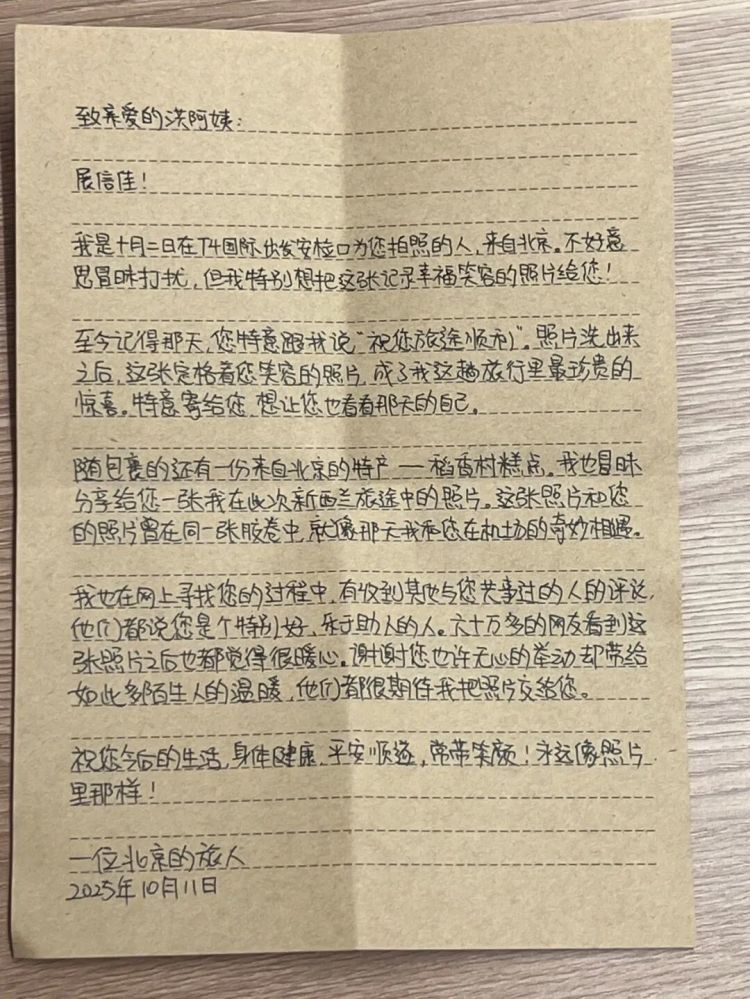 致亲爱的洪阿姨:
展信佳!
我是十月二日在T4国际出发安检口为您拍照的人,来自北京。不好意
思冒昧打扰,但我特别想把这张记录幸福笑容的照片给您!
至今记得那天,您特意跟我说“祝您旅途顺利”。照片洗出来
之后,这张定格着您笑容的照片,成了我这趟旅行里最珍贵的
惊喜。特意寄给您,想让您也看看那天的自己。
随包裹的还有一份来自北京的特产——稻香村糕点。我也冒昧
分享给您一张我在此次新西兰旅途中的照片。这张照片和您
的照片曾在同一张胶卷中,就像那天我和您在机场的奇妙相遇。
我也在网上寻找您的过程中,有收到其他与您共事过的人的评说,
他们都说您是个特别好,乐于助人的人。六十万多的网友看到这
张照片之后也都觉得很暖心。谢谢您也许无心的举动却带给
如此多陌生人的温暖,他们都很期待我把照片交给您。
祝您今后的生活,身体健康,平安顺遂,常带笑颜!永远像照片
里那样!
一位北京的旅人
2025年10月11日